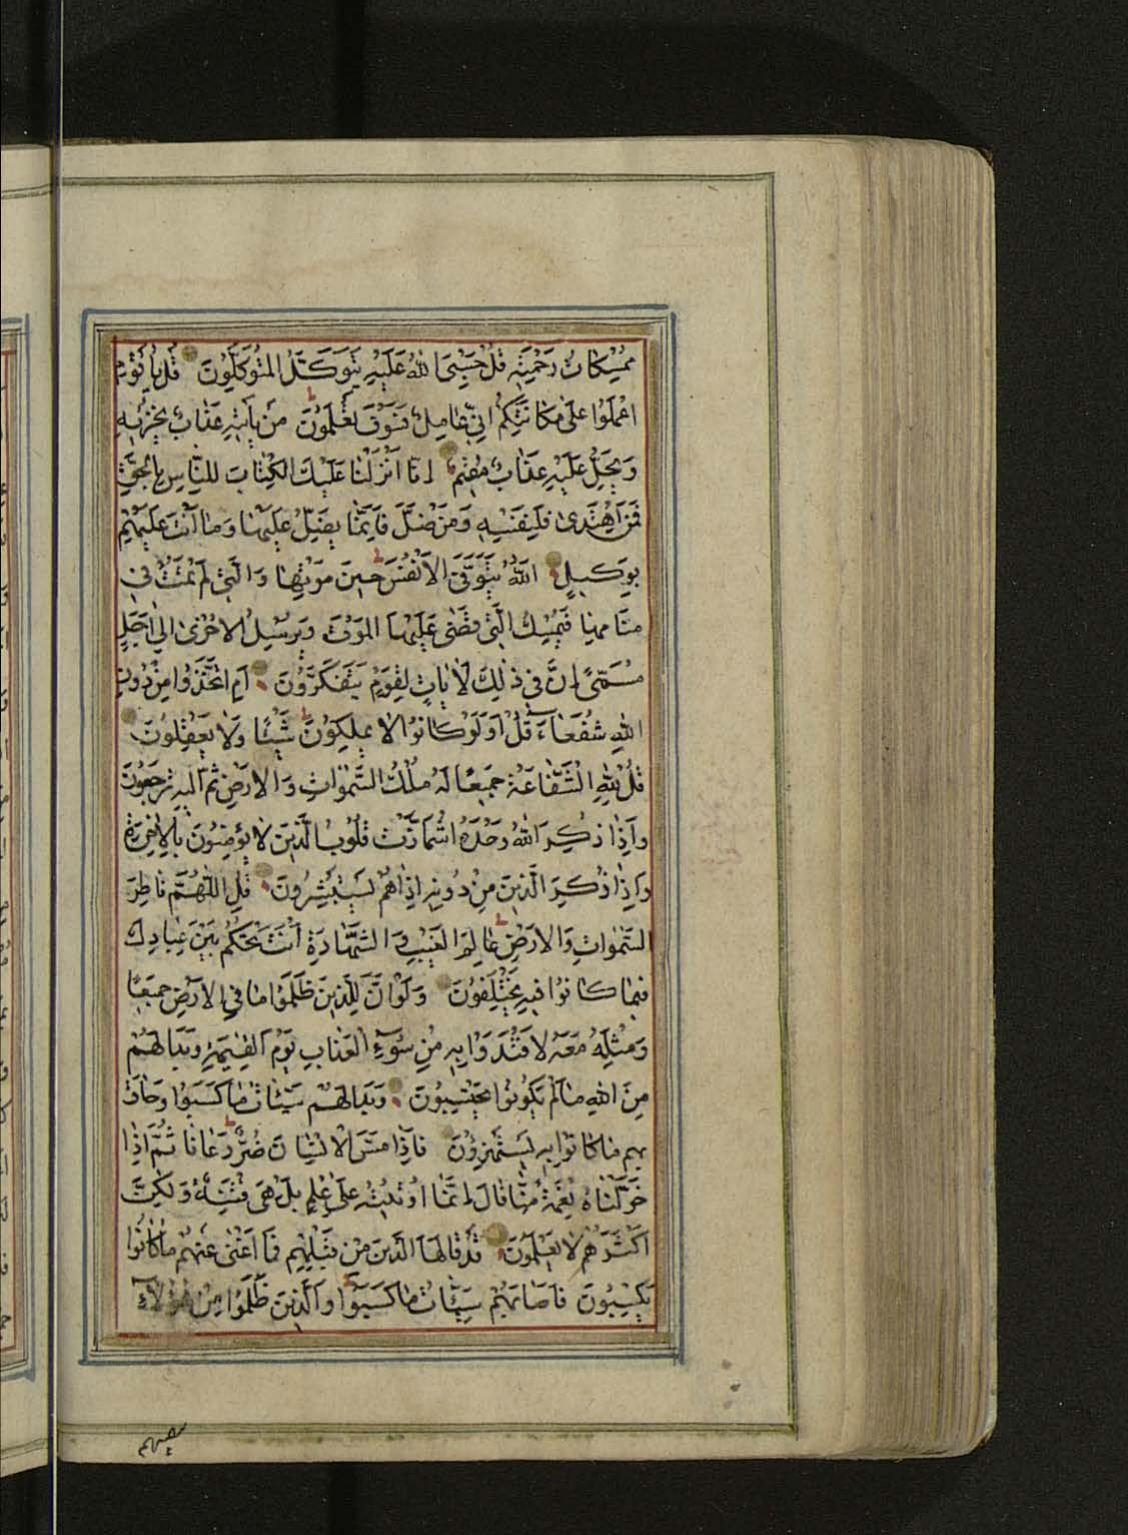 مُمْسِكَاتُ رَحْمَتِهِ قُلْ حَسْبِيَ اللّٰهُ عَلَيْهِ يَتَوَكَّلُ الْمُتَوَكِّلُونَ قُلْ يَا قَوْمِ
اعْمَلُوا عَلٰى مَكَانَتِكُمْ اِنِّي عَامِلٌ فَسَوْفَ تَعْلَمُونَ مَنْ يَأْتِيهِ عَذَابٌ يُخْزِيهِ
وَيَحِلُّ عَلَيْهِ عَذَابٌ مُقِيمٌ اِنَّا اَنْزَلْنَا عَلَيْكَ الْكِتَابَ لِلنَّاسِ بِالْحَقِّ
فَمَنِ اهْتَدٰى فَلِنَفْسِهِ وَمَنْ ضَلَّ فَاِنَّمَا يَضِلُّ عَلَيْهَا وَمَا اَنْتَ عَلَيْهِمْ
بِوَكِيلٍ اَللّٰهُ يَتَوَفَّى الْاَنْفُسَ حِينَ مَوْتِهَا وَالَّتِي لَمْ تَمُتْ فِي
مَنَامِهَا فَيُمْسِكُ الَّتِي قَضٰى عَلَيْهَا الْمَوْتَ وَيُرْسِلُ الْاُخْرٰى اِلٰى اَجَلٍ
مُسَمًّى اِنَّ فِي ذٰلِكَ لَاٰيَاتٍ لِقَوْمٍ يَتَفَكَّرُونَ اَمِ اتَّخَذُوا مِنْ دُونِ
اللّٰهِ شُفَعَاءَ قُلْ اَوَلَوْ كَانُوا لَا يَمْلِكُونَ شَيْئًا وَلَا يَعْقِلُونَ
قُلْ لِلّٰهِ الشَّفَاعَةُ جَمِيعًا لَهُ مُلْكُ السَّمٰوَاتِ وَالْاَرْضِ ثُمَّ اِلَيْهِ تُرْجَعُونَ
وَاِذَا ذُكِرَ اللّٰهُ وَحْدَهُ اشْمَاَزَّتْ قُلُوبُ الَّذِينَ لَا يُؤْمِنُونَ بِالْاٰخِرَةِ
وَاِذَا ذُكِرَ الَّذِينَ مِنْ دُونِهِ اِذَا هُمْ يَسْتَبْشِرُونَ قُلِ اللّٰهُمَّ فَاطِرَ
السَّمٰوَاتِ وَالْاَرْضِ عَالِمَ الْغَيْبِ وَالشَّهَادَةِ اَنْتَ تَحْكُمُ بَيْنَ عِبَادِكَ
فِيمَا كَانُوا فِيهِ يَخْتَلِفُونَ وَلَوْ اَنَّ لِلَّذِينَ ظَلَمُوا مَا فِي الْاَرْضِ جَمِيعًا
وَمِثْلَهُ مَعَهُ لَافْتَدَوْا بِهِ مِنْ سُوءِ الْعَذَابِ يَوْمَ الْقِيٰمَةِ وَبَدَا لَهُمْ
مِنَ اللّٰهِ مَا لَمْ يَكُونُوا يَحْتَسِبُونَ وَبَدَا لَهُمْ سَيِّئَاتُ مَا كَسَبُوا وَحَاقَ
بِهِمْ مَا كَانُوا بِهِ يَسْتَهْزِؤُنَ فَاِذَا مَسَّ الْاِنْسَانَ ضُرٌّ دَعَانَا ثُمَّ اِذَا
خَوَّلْنَاهُ نِعْمَةً مِنَّا قَالَ اِنَّمَا اُوتِيتُهُ عَلٰى عِلْمٍ بَلْ هِيَ فِتْنَةٌ وَلٰكِنَّ
اَكْثَرَهُمْ لَا يَعْلَمُونَ قَدْ قَالَهَا الَّذِينَ مِنْ قَبْلِهِمْ فَمَا اَغْنٰى عَنْهُمْ مَا كَانُوا
يَكْسِبُونَ فَاَصَابَهُمْ سَيِّئَاتُ مَا كَسَبُوا وَالَّذِينَ ظَلَمُوا مِنْ هٰؤُلَاءِ
سيصيبهم